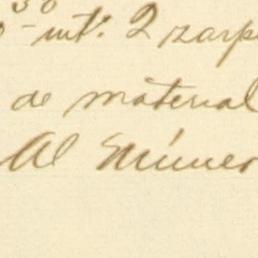 30
o-int: 2 zarp
de material
Al Númer